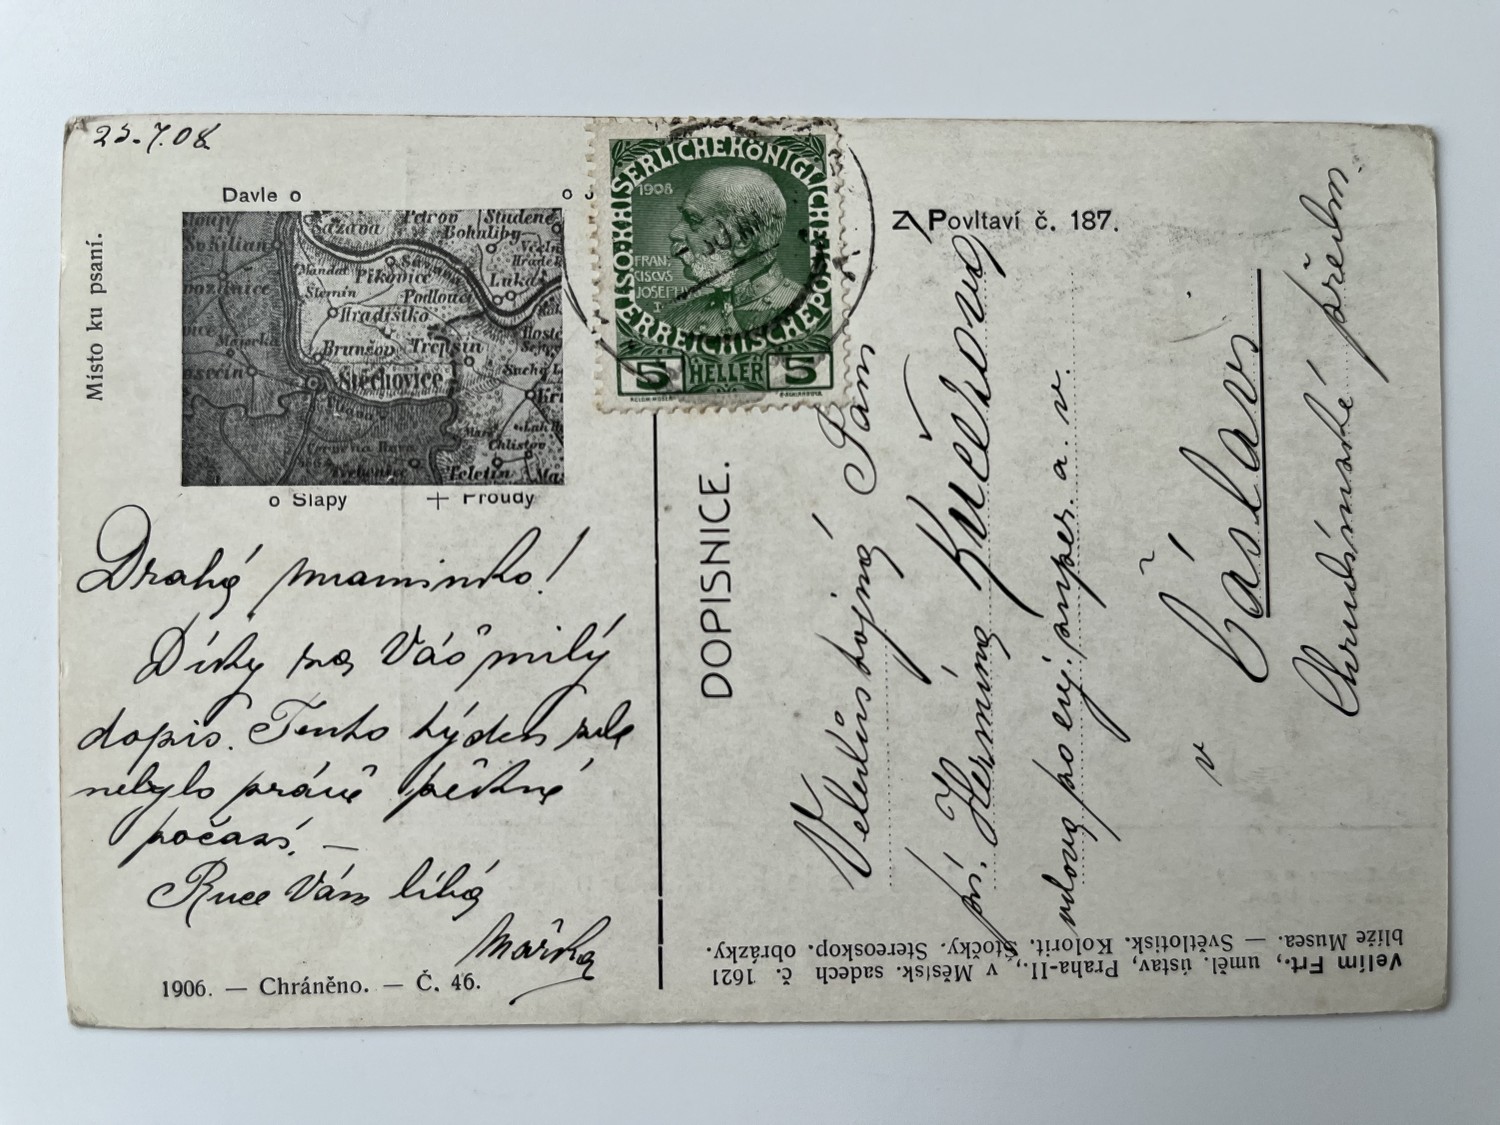 23.7.08
Místo ku psaní.
Davle o
Sv Kilian
Sázava
Petrov
Studené
Bohuliby
Mandat
Pikovice
Podlouci
Luka
Hradištko
Brunšov
Třepsín
Štěchovice
Chlistov
Teletín
o Slapy
+ Proudy
Drahá maminko!
Díky za Váš milý
dopis. Tento týden zde
nebylo právě pěkné
počasí. —
Ruce Vám líbá
Mařka
1906. — Chráněno. — Č. 46.
KAISERLICHEKÖNIGLICHE
ÖSTERREICHISCHEPOST
1908
FRAN
CISCUS
JOSEPHUS
I
5 HELLER 5
Z Povltaví č. 187.
DOPISNICE.
Velectěná Paní
pí. Hermína Kučerová
vdova po cj. insper. a v.
v Čáslavi
Chrudimské předm.
Velím Frt., uměl. ústav, Praha-II., v Městsk. sadech č. 1621
blíže Musea. — Světlotisk. Kolorit. Štočky. Stereoskop. obrázky.